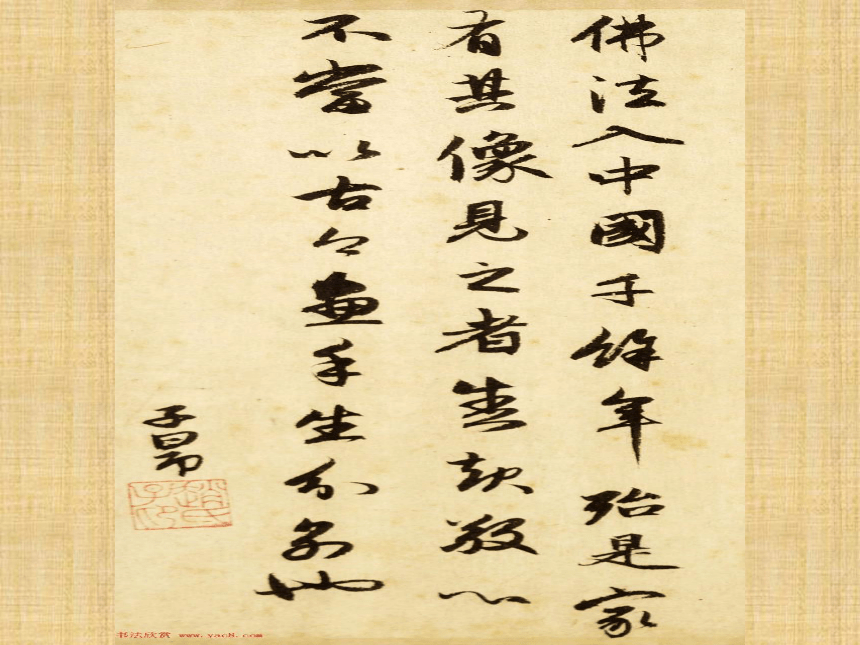 佛法入中國千餘年殆是家
有其像見之者盡起敬心
不當以古今畫手生分別也
子昂
趙氏子昂
书法欣赏 www.yac8.com